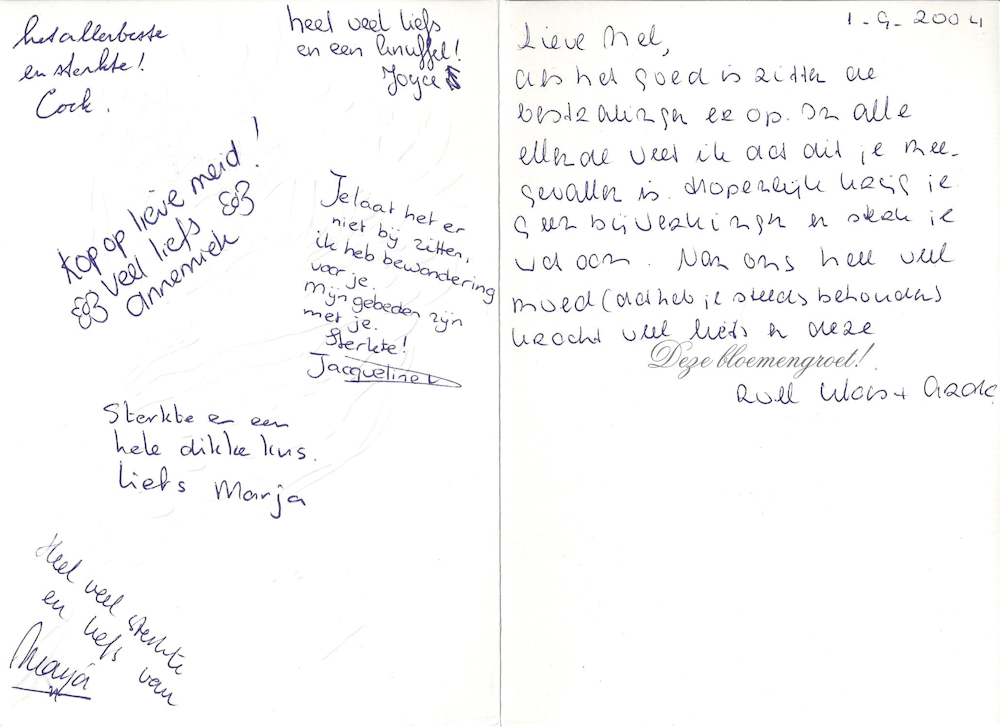 het allerbeste
en sterkte!
Cock.
heel veel liefs
en een knuffel!
Joyce
Kop op lieve meid!
veel liefs
Annemiek
Je laat het er
niet bij zitten,
ik heb bewondering
voor je.
Mijn gebeden zijn
met je.
Sterkte!
Jacqueline
Sterkte en een
hele dikke kus.
Liefs Marja
Heel veel sterkte
en liefs van
Marja
1-9-2004
Lieve Mel,
als het goed is zitten de
bestralingen er op. In alle
ellende weet ik dat dit je mee-
gevallen is. Hopenlijk krijg je
geen bijwerkingen en sterk je
wat aan. Van ons heel veel
moed (dat heb je steeds behouden)
kracht veel liefs en deze
Deze bloemengroet!